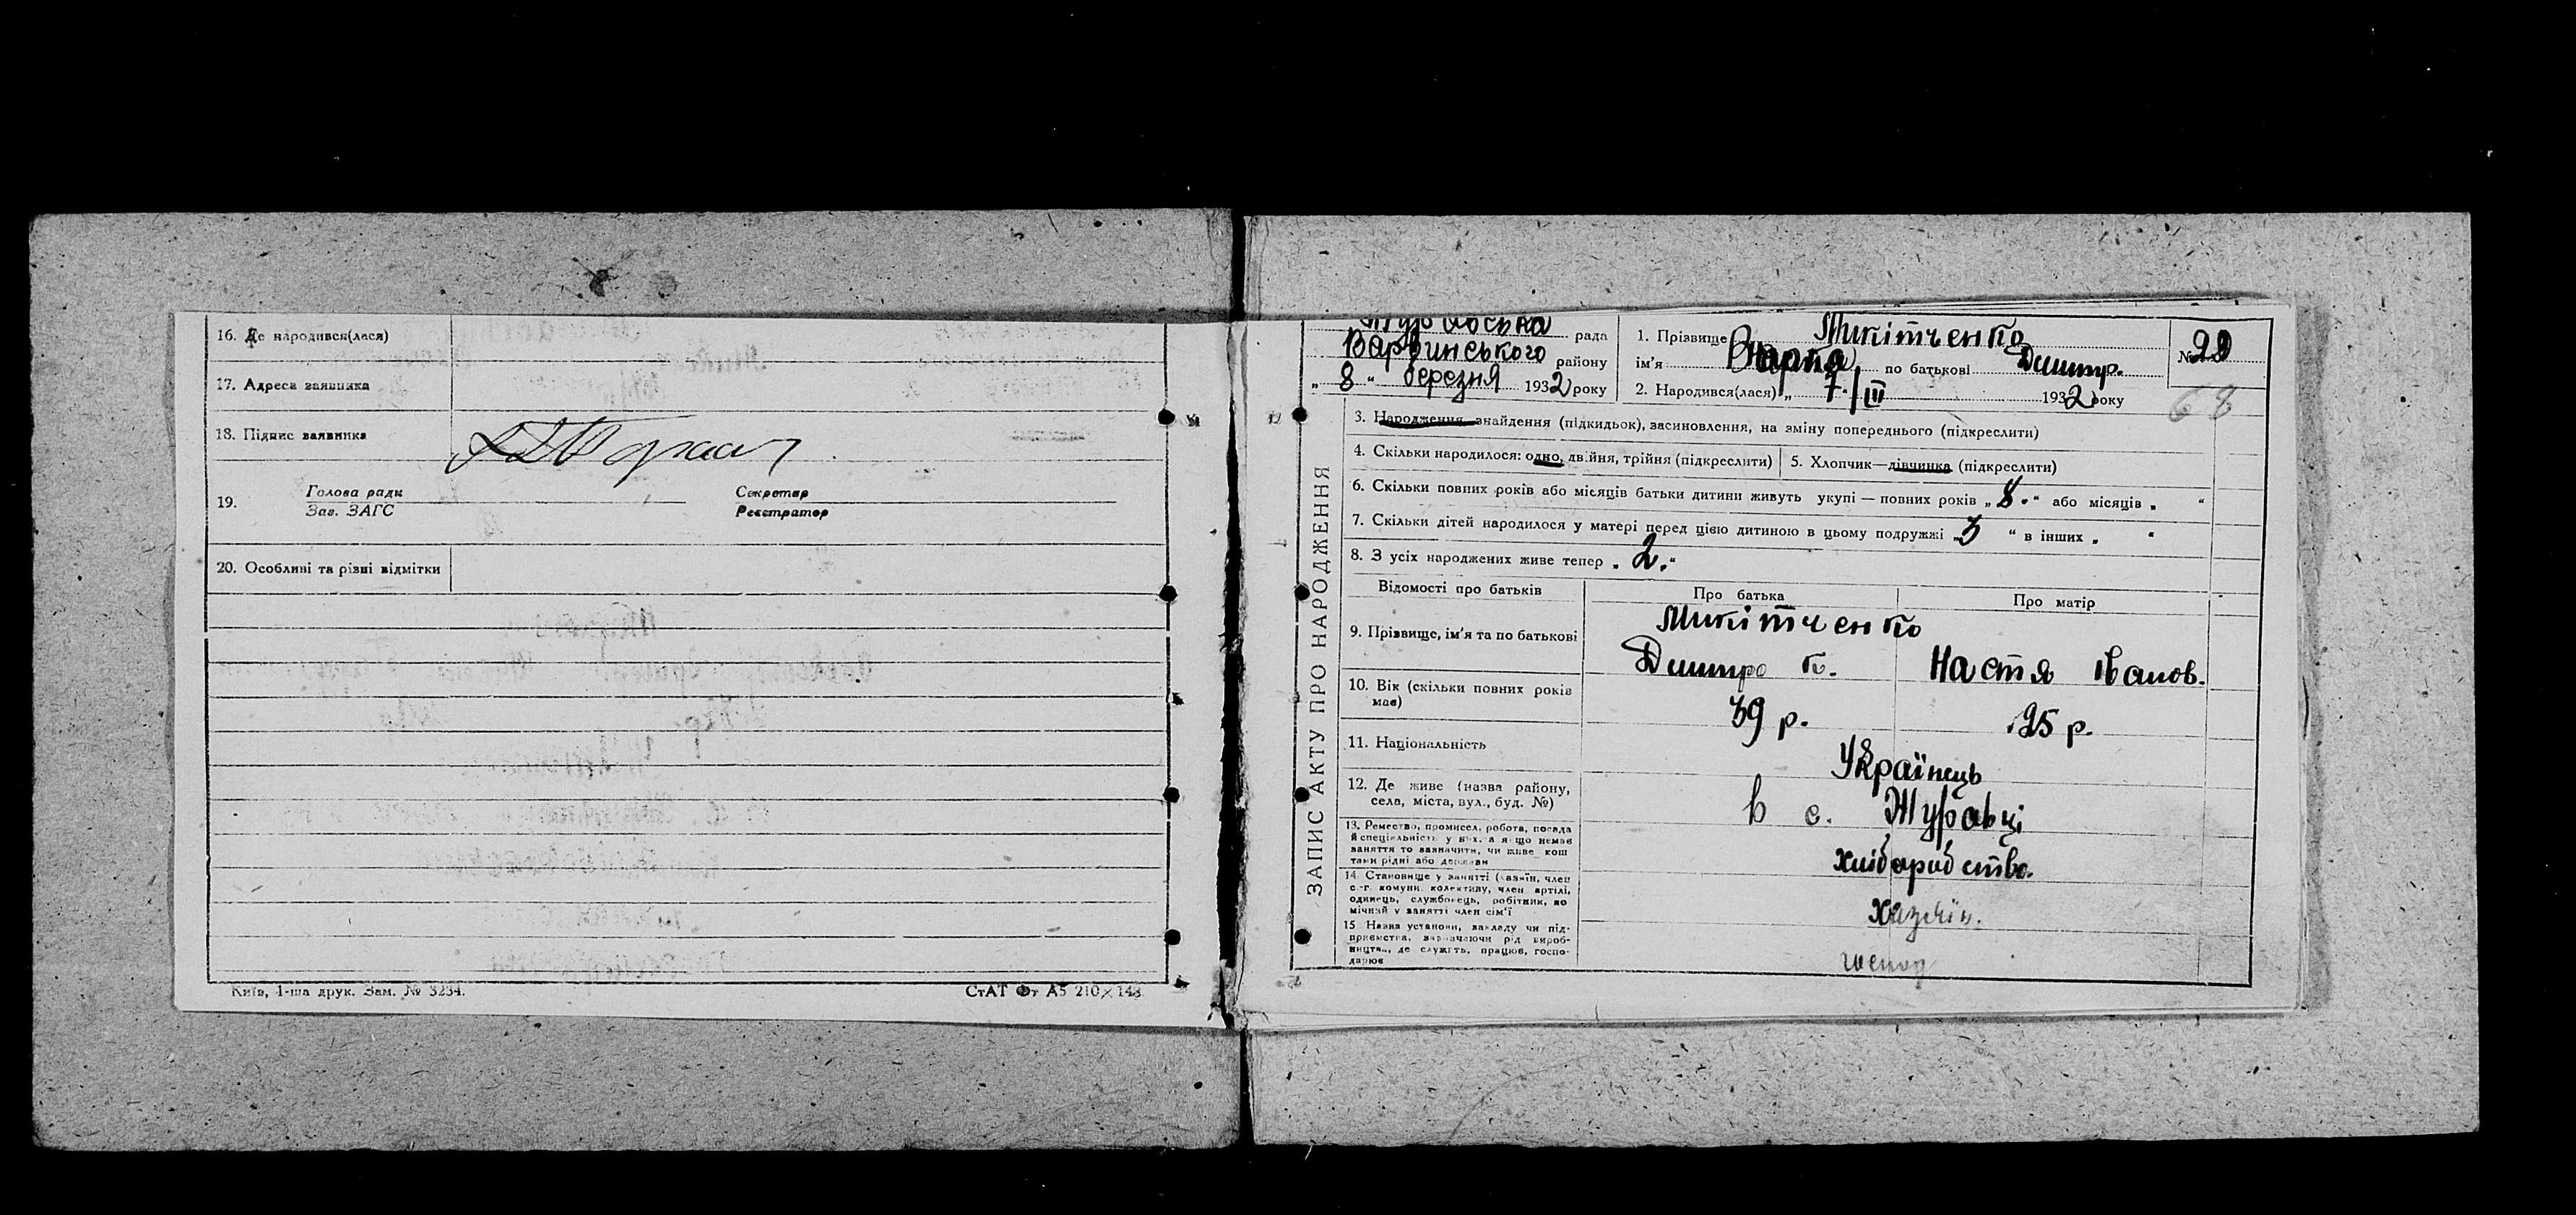 16. Де народився(лася)
17. Адреса заявника
18. Підпис заявника
19.
Голова ради
Зав. ЗАГС
Секретар
Реєстратор
20. Особливі та різні відмітки
Київ, 1-ша друк. Зам. № 3234.
СтАТ Фт А5 210×148
ЗАПИС АКТУ ПРО НАРОДЖЕННЯ
рада
Варвинського району
„ 8 “ березня 1932 року
1. Прізвище Микітченко
ім'я по батькові Дмитр.
2. Народився(лася) „ 7/III 1932 року
№ 29
68
3. Народження, знайдення (підкидьок), засиновлення, на зміну попереднього (підкреслити)
4. Скільки народилося: одно, двійня, трійня (підкреслити)
5. Хлопчик—дівчинка (підкреслити)
6. Скільки повних років або місяців батьки дитини живуть укупі — повних років „ 8. “ або місяців „ “
7. Скільки дітей народилося у матері перед цією дитиною в цьому подружжі „ 3 “ в інших „ “
8. З усіх народжених живе тепер „ 2. “
Відомості про батьків
Про батька
Про матір
9. Прізвище, ім'я та по батькові
Микітченко
Дмитро К.
Настя Іванов.
10. Вік (скільки повних років має)
39 р.
25 р.
11. Національність
Українець
12. Де живе (назва району, села, міста, вул., буд. №)
в с. Журавці
13. Ремество, промисел, робота, посада й спеціяльність у них, а якщо немає заняття то зазначити, чи живе кош тами рідні або держави
Хліборобство.
14. Становище у занятті (хазяїн, член с.-г. комуни, колективу, член артілі, одинець, службовець, робітник, по мічний у занятті член сім'ї
Хазяїн.
15 Назва установи, закладу чи під-
приємства, зазначаючи рід вироб-
ництва, де служить, працює, госпо-
дарює